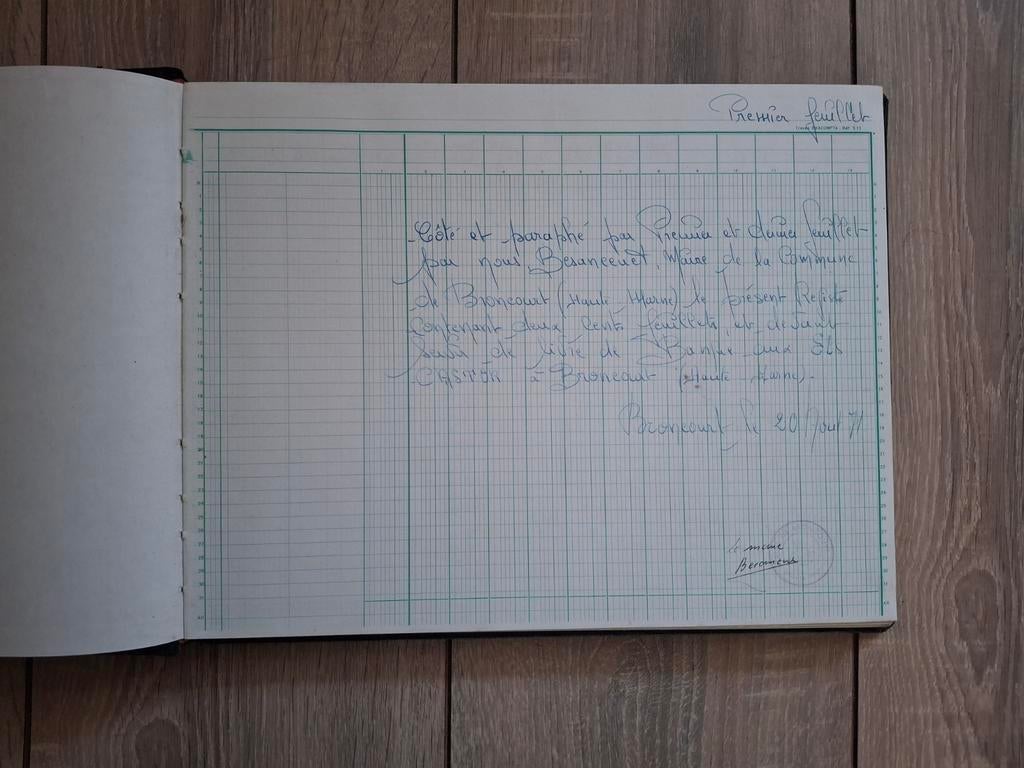 Premier feuillet
Côté et paraphé par Premier et dernier feuillet
par nous Besancenet, Maire de la Commune
de Broncourt (Haute Marne) le présent Registre
Contenant deux cents feuillets et devant
servir de livre de Banque aux Ets
CASTOR à Broncourt (Haute Marne).
Broncourt le 20 Aout 71
le maire
Besancenet